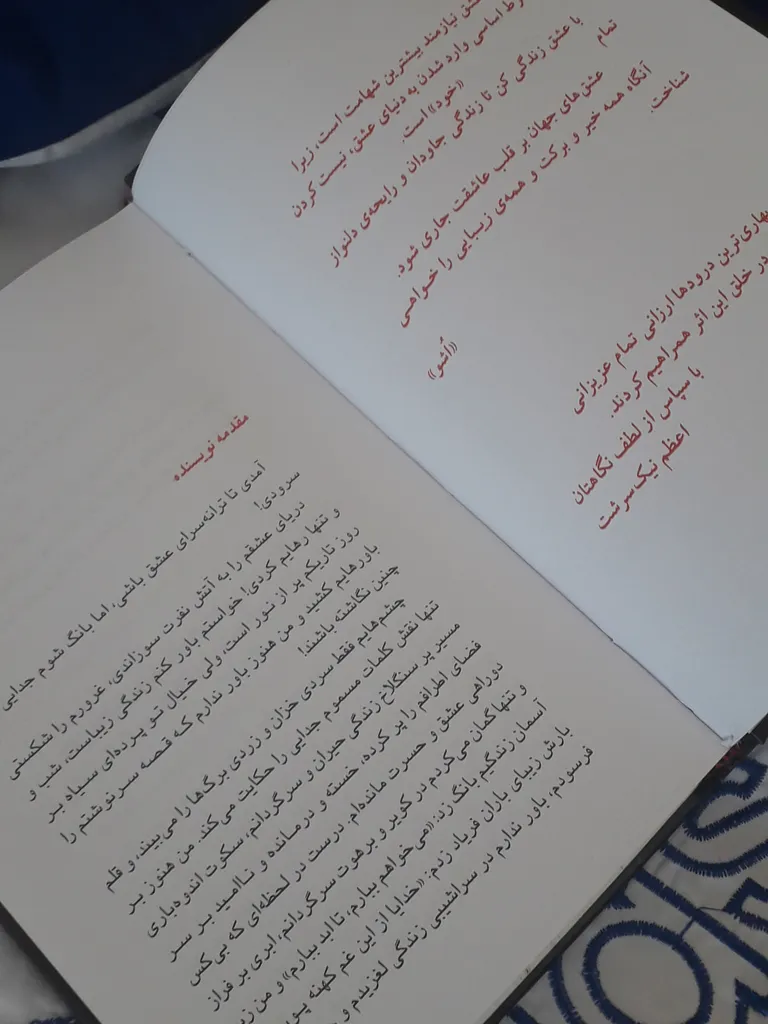 عشق نیازمند بیشترین شهامت است، زیرا
شرط اساسی وارد شدن به دنیای عشق، نیست کردن
«خود» است.
با عشق زندگی کن تا زندگی جاودان و رایحه‌ی دلنواز
تمام
عشق‌های جهان بر قلب عاشقت جاری شود.
آنگاه همه خیر و برکت و همه‌ی زیبایی را خواهی
شناخت.
«اُشو»
بهاری‌ترین درودها ارزانی تمام عزیزانی
در خلق این اثر همراهیم کردند.
با سپاس از لطف نگاهتان
اعظم نیک‌سرشت
مقدمه نویسنده
آمدی تا ترانه‌سرای عشق باشی، اما بانگ شوم جدایی
سرودی!
دریای عشقم را به آتش نفرت سوزاندی، غرورم را شکستی
و تنها رهایم کردی! خواستم باور کنم زندگی زیباست، شب و
روز تاریکم پر از نور است، ولی خیال تو پرده‌ای سیاه بر
باورهایم کشید و من هنوز باور ندارم که قصه سرنوشتم را
چنین نگاشته باشند!
چشم‌هایم فقط سردی خزان و زردی برگ‌ها را می‌بیند، و قلم
تنها نقش کلمات مسموم جدایی را حکایت می‌کند. من هنوز بر
مسیر پر سنگلاخ زندگی حیران و سرگردانم، سکوت اندوه‌باری
فضای اطرافم را پر کرده، خسته و درمانده و ناامید بر سر
دوراهی عشق و حسرت مانده‌ام. درست در لحظه‌ای که بی‌کس
و تنها گمان می‌کردم در کویر و برهوت سرگردانم، ابری بر فراز
آسمان زندگیم بانگ زد: «می‌خواهم ببارم، تا ابد ببارم» و من
بارش زیبای باران فریاد زدم: «خدایا از این غم کهنه
فرسودم، باور ندارم در سراشیبی زندگی لغزیدم و